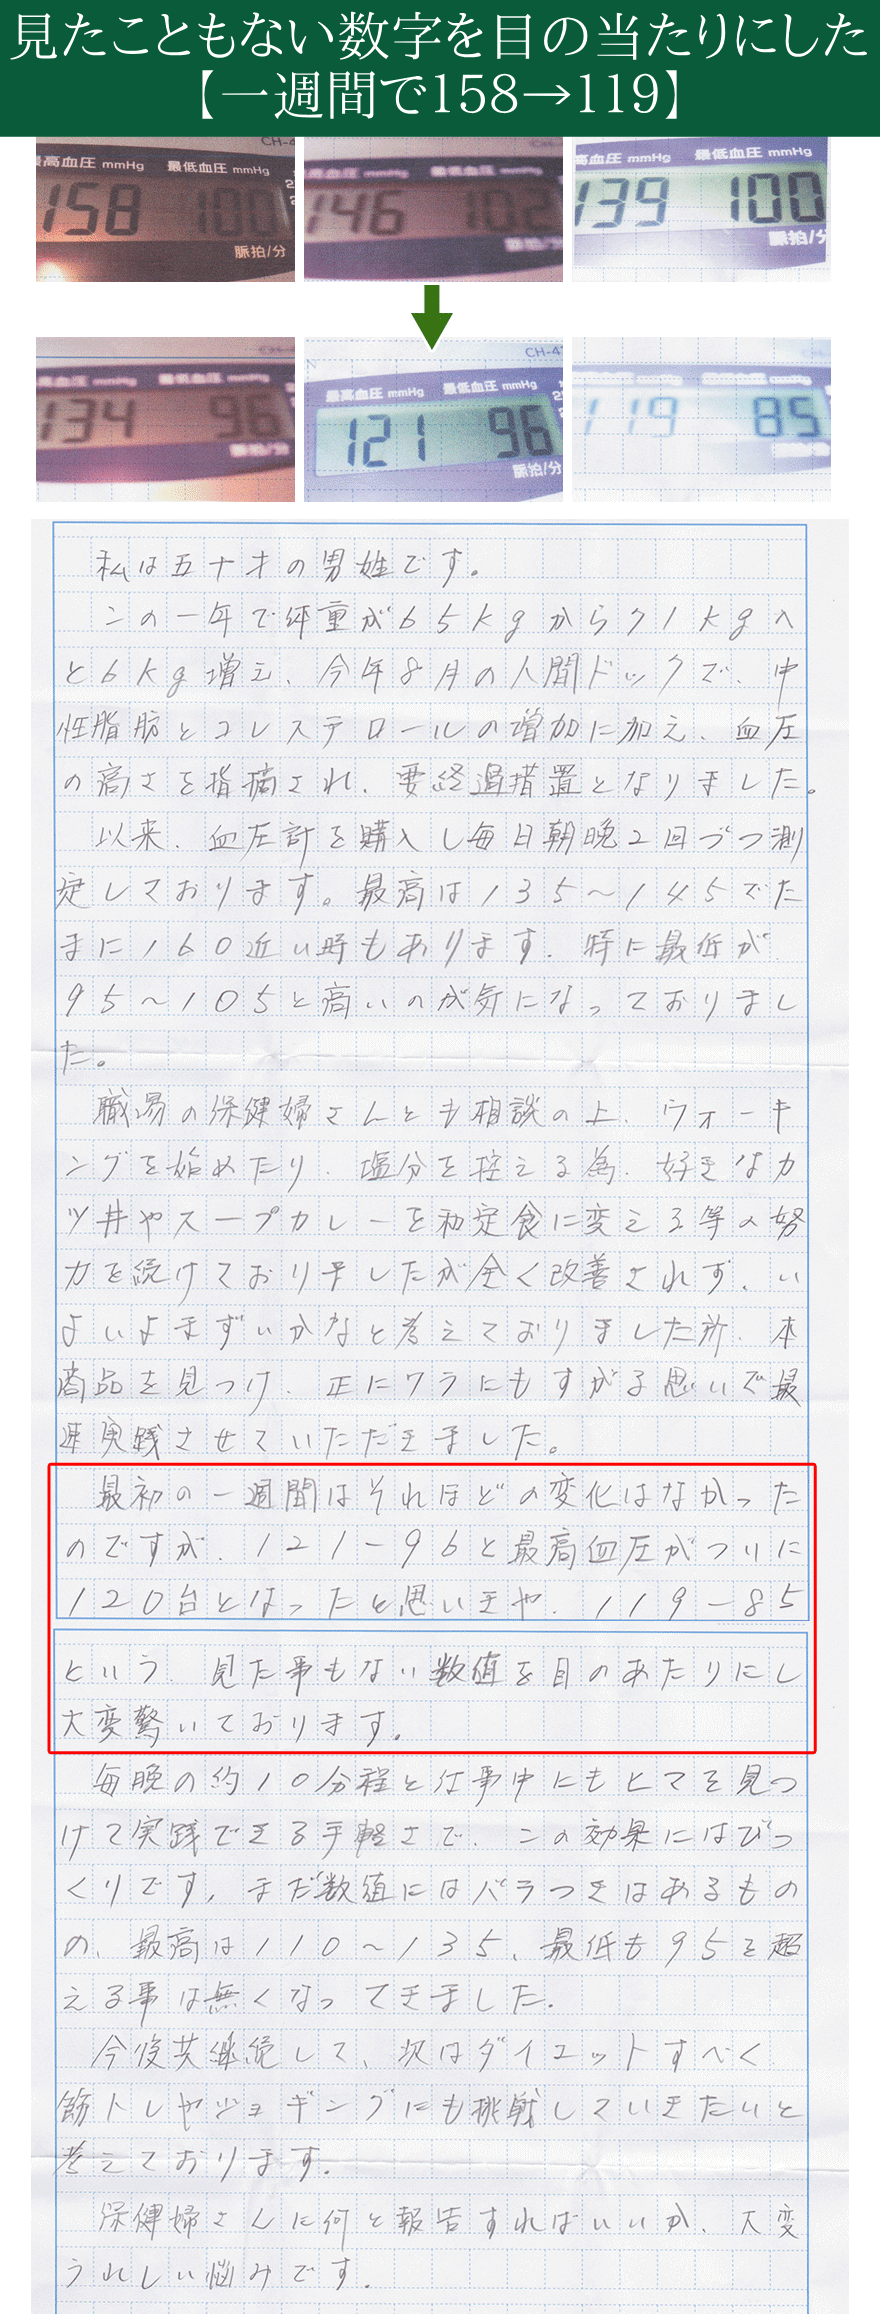 見たこともない数字を目の当たりにした
【一週間で158→119】
CH-4
最高血圧 mmHg 最低血圧 mmHg
158 100
脈拍/分
最高血圧 mmHg 最低血圧 mmHg
146 102
脈拍/分
高血圧 mmHg 最低血圧 mmHg
139 100
脈拍/分
最高血圧 mmHg 最低血圧 mmHg
134 96
脈拍/分
CH-4
最高血圧 mmHg 最低血圧 mmHg
121 96
脈拍/分
119 85
私は五十才の男姓です。
この一年で体重が65kgから71kgへ
と6kg増え、今年8月の人間ドックで、中
性脂肪とコレステロールの増加に加え、血圧
の高さを指摘され、要経過措置となりました。
以来、血圧計を購入し毎日朝晩2回づつ測
定しております。最高は135〜145でた
まに160近い時もあります。特に最低が
95〜105と高いのが気になっておりまし
た。
職場の保健婦さんとも相談の上、ウォーキ
ングを始めたり、塩分を控える為、好きなカ
ツ丼やスープカレーを和定食に変える等の努
力を続けておりましたが全く改善されず、い
よいよまずいかなと考えておりました所、本
商品を見つけ、正にワラにもすがる思いで最
速実践させていただきました。
最初の一週間はそれほどの変化はなかった
のですが、121-96と最高血圧がついに
120台となったと思いきや、119-85
という、見た事もない数値を目のあたりにし
大変驚いております。
毎晩の約10分程と仕事中にもヒマを見つ
けて実践できる手軽さで、この効果にはびっ
くりです。まだ数値にはバラつきはあるもの
の、最高は110〜135、最低も95を超
える事は無くなってきました。
今後共継続して、次はダイエットすべく
筋トレやジョギングにも挑戦していきたいと
考えております。
保健婦さんに何と報告すればいいか、大変
うれしい悩みです。